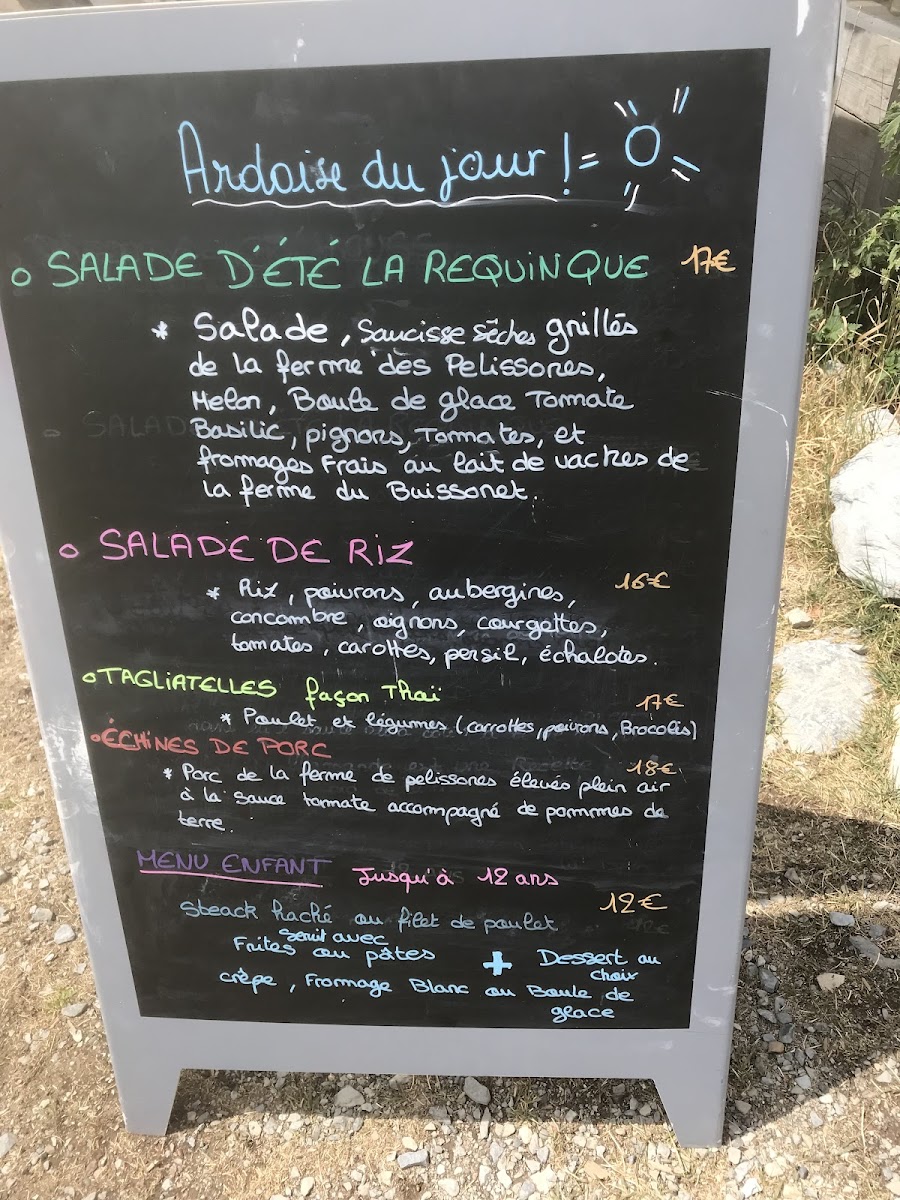 Ardoise du jour !
SALADE D'ÉTÉ LA REQUINQUE 17€
* Salade, Saucisse sêches grillés
de la ferme des Pelissones,
Melon, Boule de glace Tomate
Basilic, pignons, Tomates, et
fromages Frais au lait de vaches de
la ferme du Buissonet.
SALADE DE RIZ
16€
* Riz, poivrons, aubergines,
concombre, oignons, courgettes,
tomates, carottes, persil, échalotes.
TAGLIATELLES façon Thaï
17€
* Poulet et légumes (carrottes, poivrons, Brocolis)
ÉCHINES DE PORC
18€
* Porc de la ferme de pelissones élevés plein air
à la sauce tomate accompagné de pommes de
terre.
MENU ENFANT Jusqu'à 12 ans
12€
Steack haché ou filet de poulet
Servit avec
Frites ou pâtes + Dessert au
choix
crêpe, Fromage Blanc ou Boule de
glace